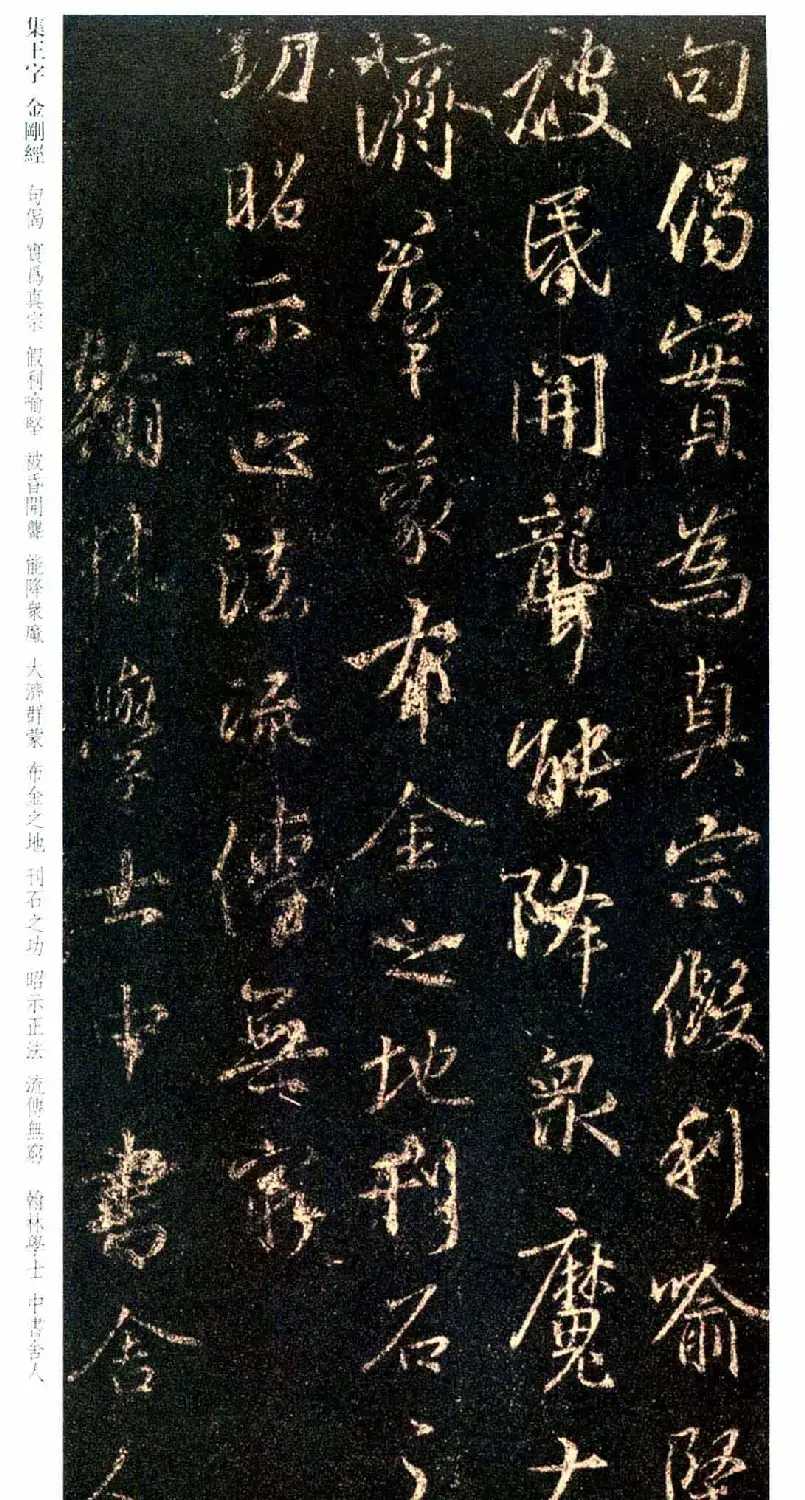 句偈實為真宗假利喻堅
破昏開聾能降衆魔大
濟群蒙布金之地刊石之
功昭示正法流傳無窮
翰林學士中書舍人
集王字 金剛經 句偈 實爲真宗 假利喻堅 被昏開聾 能降衆魔 大濟群蒙 布金之地 刊石之功 昭示正法 流傳無窮 翰林學士 中書舍人